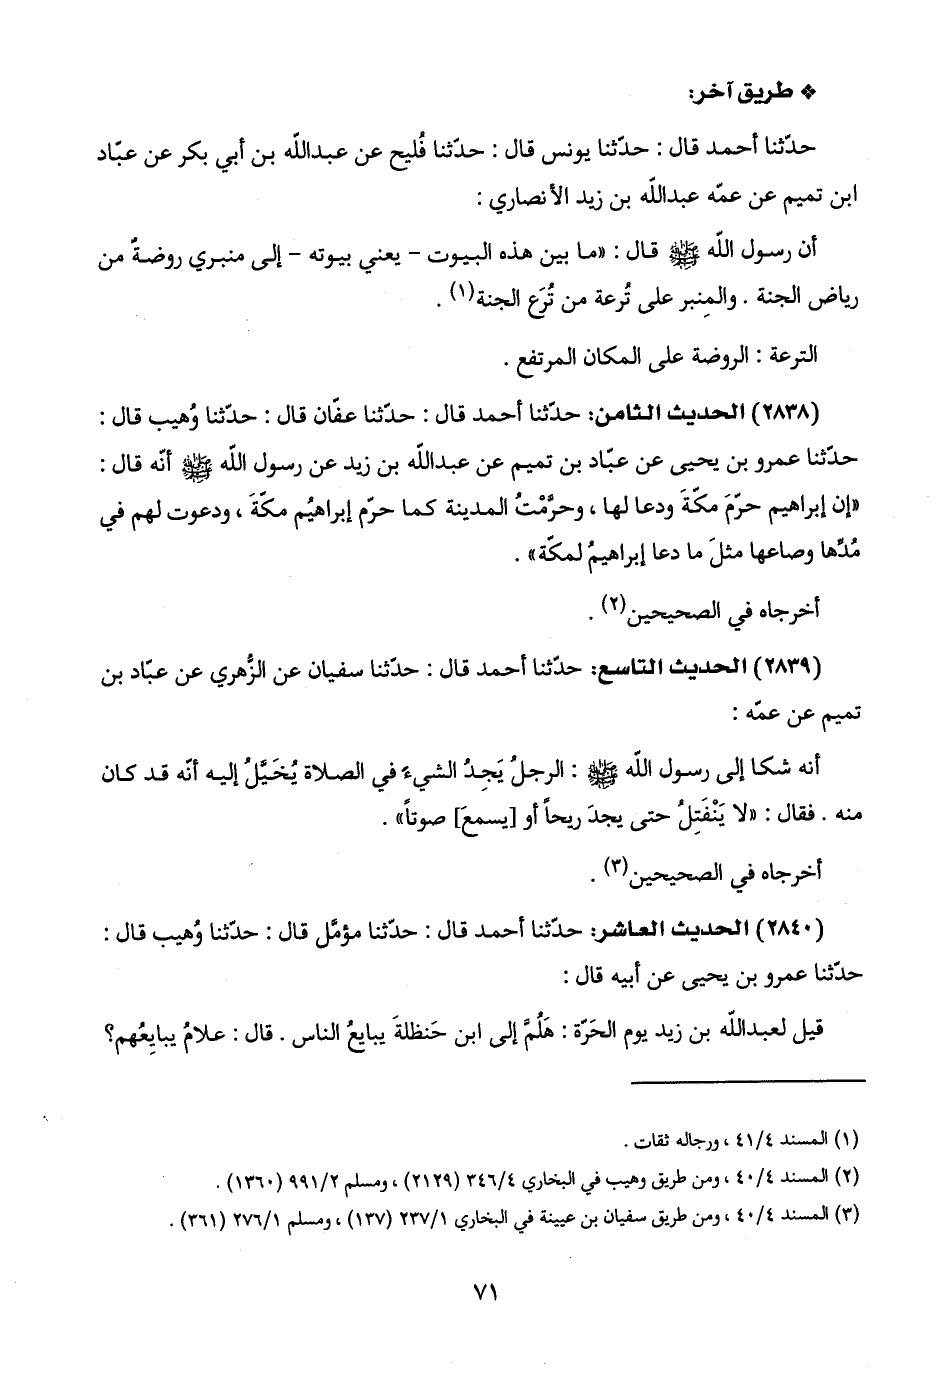 ❖ طريق آخر:
حدّثنا أحمد قال : حدّثنا يونس قال : حدّثنا فُليح عن عبدالله بن أبي بكر عن عبّاد
ابن تميم عن عمّه عبدالله بن زيد الأنصاري :
أن رسول الله ﷺ قال : «ما بين هذه البيوت – يعني بيوته – إلى منبري روضةٌ من
رياض الجنة . والمنبر على تُرعة من تُرَع الجنة(١) .
الترعة : الروضة على المكان المرتفع .
(٢٨٣٨) الحديث الثامن: حدّثنا أحمد قال : حدّثنا عفّان قال : حدّثنا وُهيب قال :
حدّثنا عمرو بن يحيى عن عبّاد بن تميم عن عبدالله بن زيد عن رسول الله ﷺ أنّه قال :
«إن إبراهيم حرّمَ مكّةَ ودعا لها ، وحرَّمْتُ المدينة كما حرّم إبراهيُم مكّةَ ، ودعوت لهم في
مُدِّها وصاعها مثلَ ما دعا إبراهيمُ لمكّة» .
أخرجاه في الصحيحين(٢) .
(٢٨٣٩) الحديث التاسع: حدّثنا أحمد قال : حدّثنا سفيان عن الزُّهري عن عبّاد بن
تميم عن عمّه :
أنه شكا إلى رسول الله ﷺ : الرجلُ يَجِدُ الشيءَ في الصلاة يُخَيَّلُ إليه أنّه قد كان
منه . فقال : «لا يَنْفَتِلُ حتى يجدَ ريحاً أو [يسمعَ] صوتاً» .
أخرجاه في الصحيحين(٣) .
(٢٨٤٠) الحديث العاشر: حدّثنا أحمد قال : حدّثنا مؤمَّل قال : حدّثنا وُهيب قال :
حدّثنا عمرو بن يحيى عن أبيه قال :
قيل لعبدالله بن زيد يوم الحَرّة : هَلُمَّ إلى ابن حَنظلةَ يبايعُ الناس . قال : علامُ يبايِعُهم؟
(١) المسند ٤١/٤ ، ورجاله ثقات .
(٢) المسند ٤٠/٤ ، ومن طريق وهيب في البخاري ٣٤٦/٤ (٢١٢٩) ، ومسلم ٩٩١/٢ (١٣٦٠) .
(٣) المسند ٤٠/٤ ، ومن طريق سفيان بن عيينة في البخاري ٢٣٧/١ (١٣٧) ، ومسلم ٢٧٦/١ (٣٦١) .
٧١